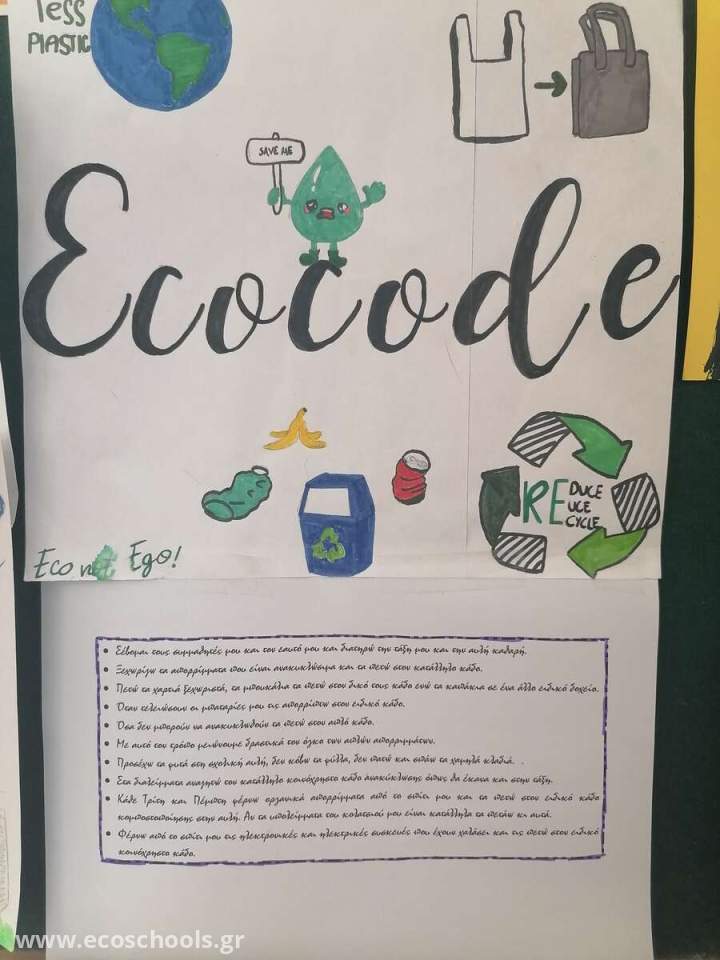 less
PLASTIC
SAVE ME
Ecocode
REDUCE
UCE
CYCLE
Eco not Ego!
• Σέβομαι τους συμμαθητές μου και τον εαυτό μου και διατηρώ την τάξη μου και την αυλή καθαρή.
• Ξεχωρίζω τα απορρίμματα που είναι ανακυκλώσιμα και τα πετώ στον κατάλληλο κάδο.
• Πετώ τα χαρτιά ξεχωριστά, τα μπουκάλια τα πετώ στον δικό τους κάδο ενώ τα καπάκια σε ένα άλλο ειδικό δοχείο.
• Όταν τελειώσουν οι μπαταρίες μου τις απορρίπτω στον ειδικό κάδο.
• Όσα δεν μπορούν να ανακυκλωθούν τα πετώ στον απλό κάδο.
• Με αυτό τον τρόπο μειώνουμε δραστικά τον όγκο των απλών απορριμμάτων.
• Προσέχω τα φυτά στη σχολική αυλή, δεν κόβω τα φύλλα, δεν πατώ και σπάω τα χαμηλά κλαδιά. .
• Στα διαλείμματα αναζητώ τον κατάλληλο κοινόχρηστο κάδο ανακύκλωσης όπως θα έκανα και στην τάξη.
• Κάθε Τρίτη και Πέμπτη φέρνω οργανικά απορρίμματα από το σπίτι μου και τα πετώ στον ειδικό κάδο
κομποστοποίησης στην αυλή. Αν τα υπολείμματα του κολατσιού μου είναι κατάλληλα τα πετάω κι αυτά.
• Φέρνω από το σπίτι μου τις ηλεκτρονικές και ηλεκτρικές συσκευές που έχουν χαλάσει και τις πετώ στον ειδικό
κοινόχρηστο κάδο.
www.ecoschools.gr